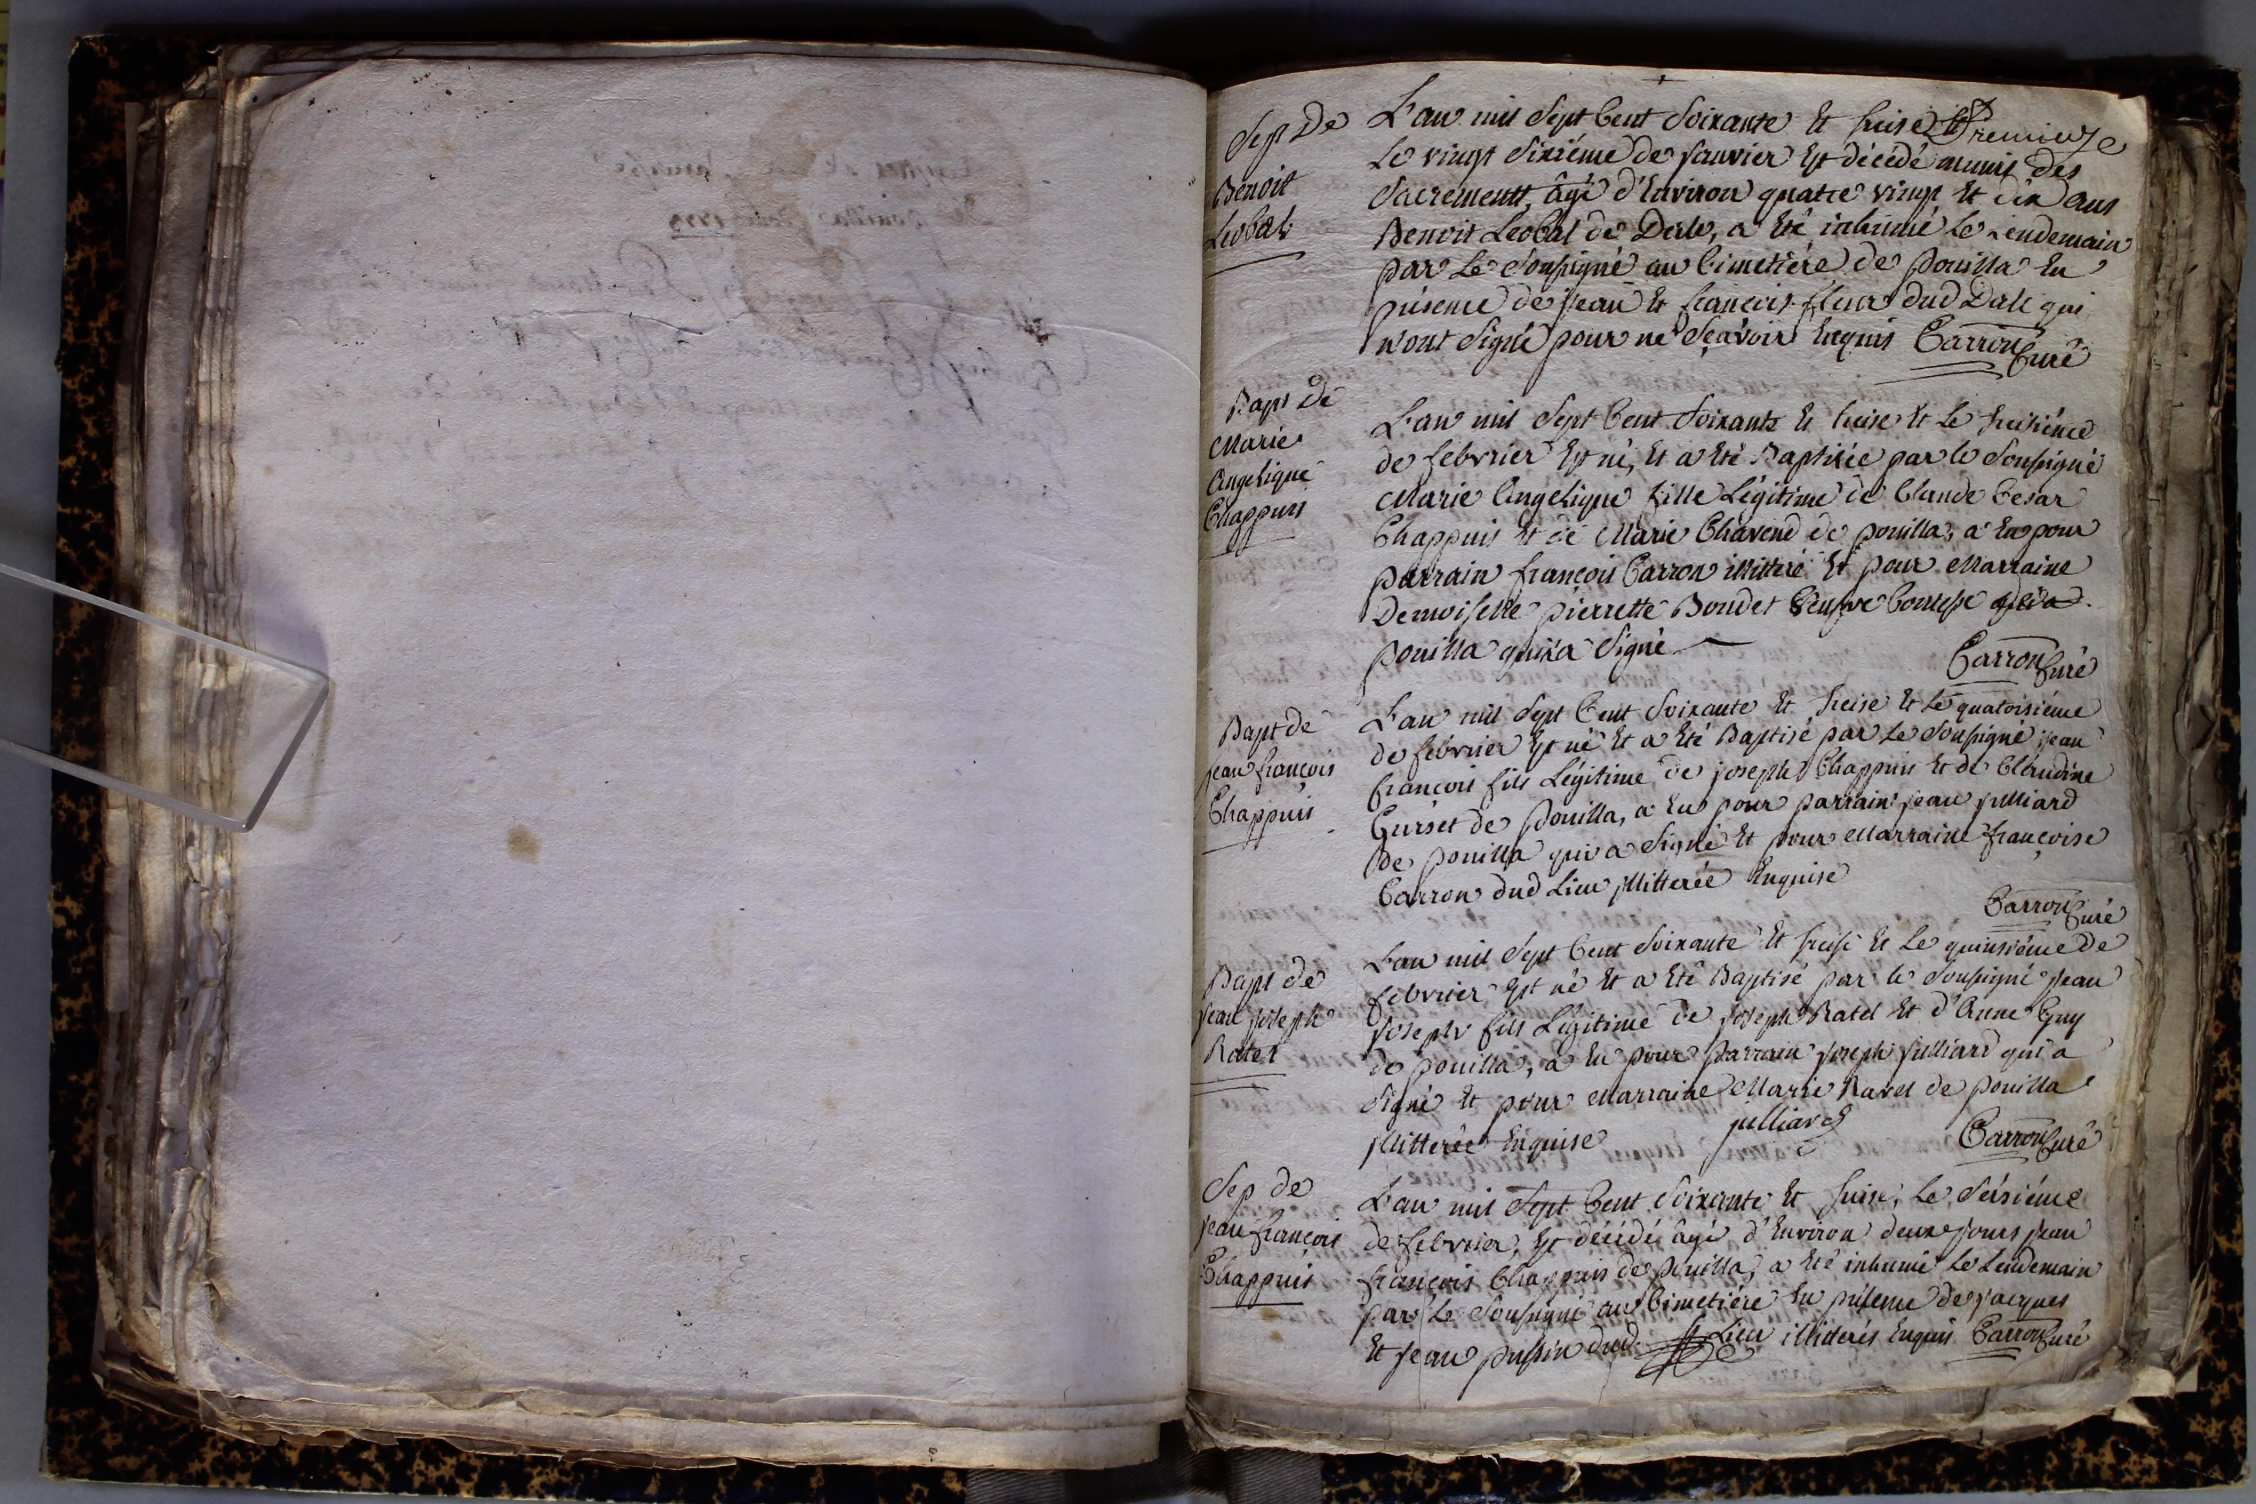 Sep De
Benoit
Leobal
L'an mil Sept Cent Soixante Et treise Premiere
Le vingt Sixiéme de janvier Est décédé munis des
Sacrements, âgé d'Environ quatre vingt Et dix ans
Benoit Leobal de Dale, a Eté inhumé Le Lendemain
par Le Soussigné au Cimetiére de pouilla En
présence de jean Et françois fleur dud Dale qui
n'ont Signé pour ne Sçavoir Enquis Carron Curé
Bapt De
Marie
Angelique
Chappuis
L'an mil Sept Cent Soixante Et treise Et Le treisiéme
de febvrier Est né, Et a Eté Baptisée par le Soussigné
Marie Angelique fille Légitime de Claude Cesar
Chappuis Et de Marie Chavend de pouilla, a Eu pour
parrain françois Carron illitteré Et pour Marraine
Demoiselle pierrette Boudet Veusve Contesse
pouilla qui a Signé
Carron Curé
Bapt de
jean françois
Chappuis
L'an mil Sept Cent Soixante Et treise Et Le quatorsiéme
de febvrier Est né Et a Eté Baptisé par Le Soussigné jean
françois fils Légitime de joseph Chappuis Et de Claudine
Gurset de Pouilla, a Eu pour parrain jean julliard
de pouilla qui a Signé Et pour Marraine françoise
Carron dud Lieu illitterée Enquise
Carron Curé
Bapt de
jean joseph
Ratel
L'an mil Sept Cent Soixante Et treise Et Le quinsiéme de
febvrier Est né Et a Eté Baptisé par le Soussigné jean
joseph fils Légitime de joseph Ratel Et d'Anne Guy
de pouilla, a Eu pour parrain joseph julliard qui a
Signé Et pour Marraine Marie Ravel de pouilla
illitterée Enquise julliard Carron Curé
Sep de
jean françois
Chappuis
L'an mil Sept Cent Soixante Et treise, Le Seisiéme
de febvrier, Est décédé âgé d'Environ deux jours jean
françois Chappuis de pouilla, a Eté inhumé Le Lendemain
par Le Soussigné au Cimetiére En présence de jacques
Et jean pussin dud Lieu illiterés Enquis Carron Curé